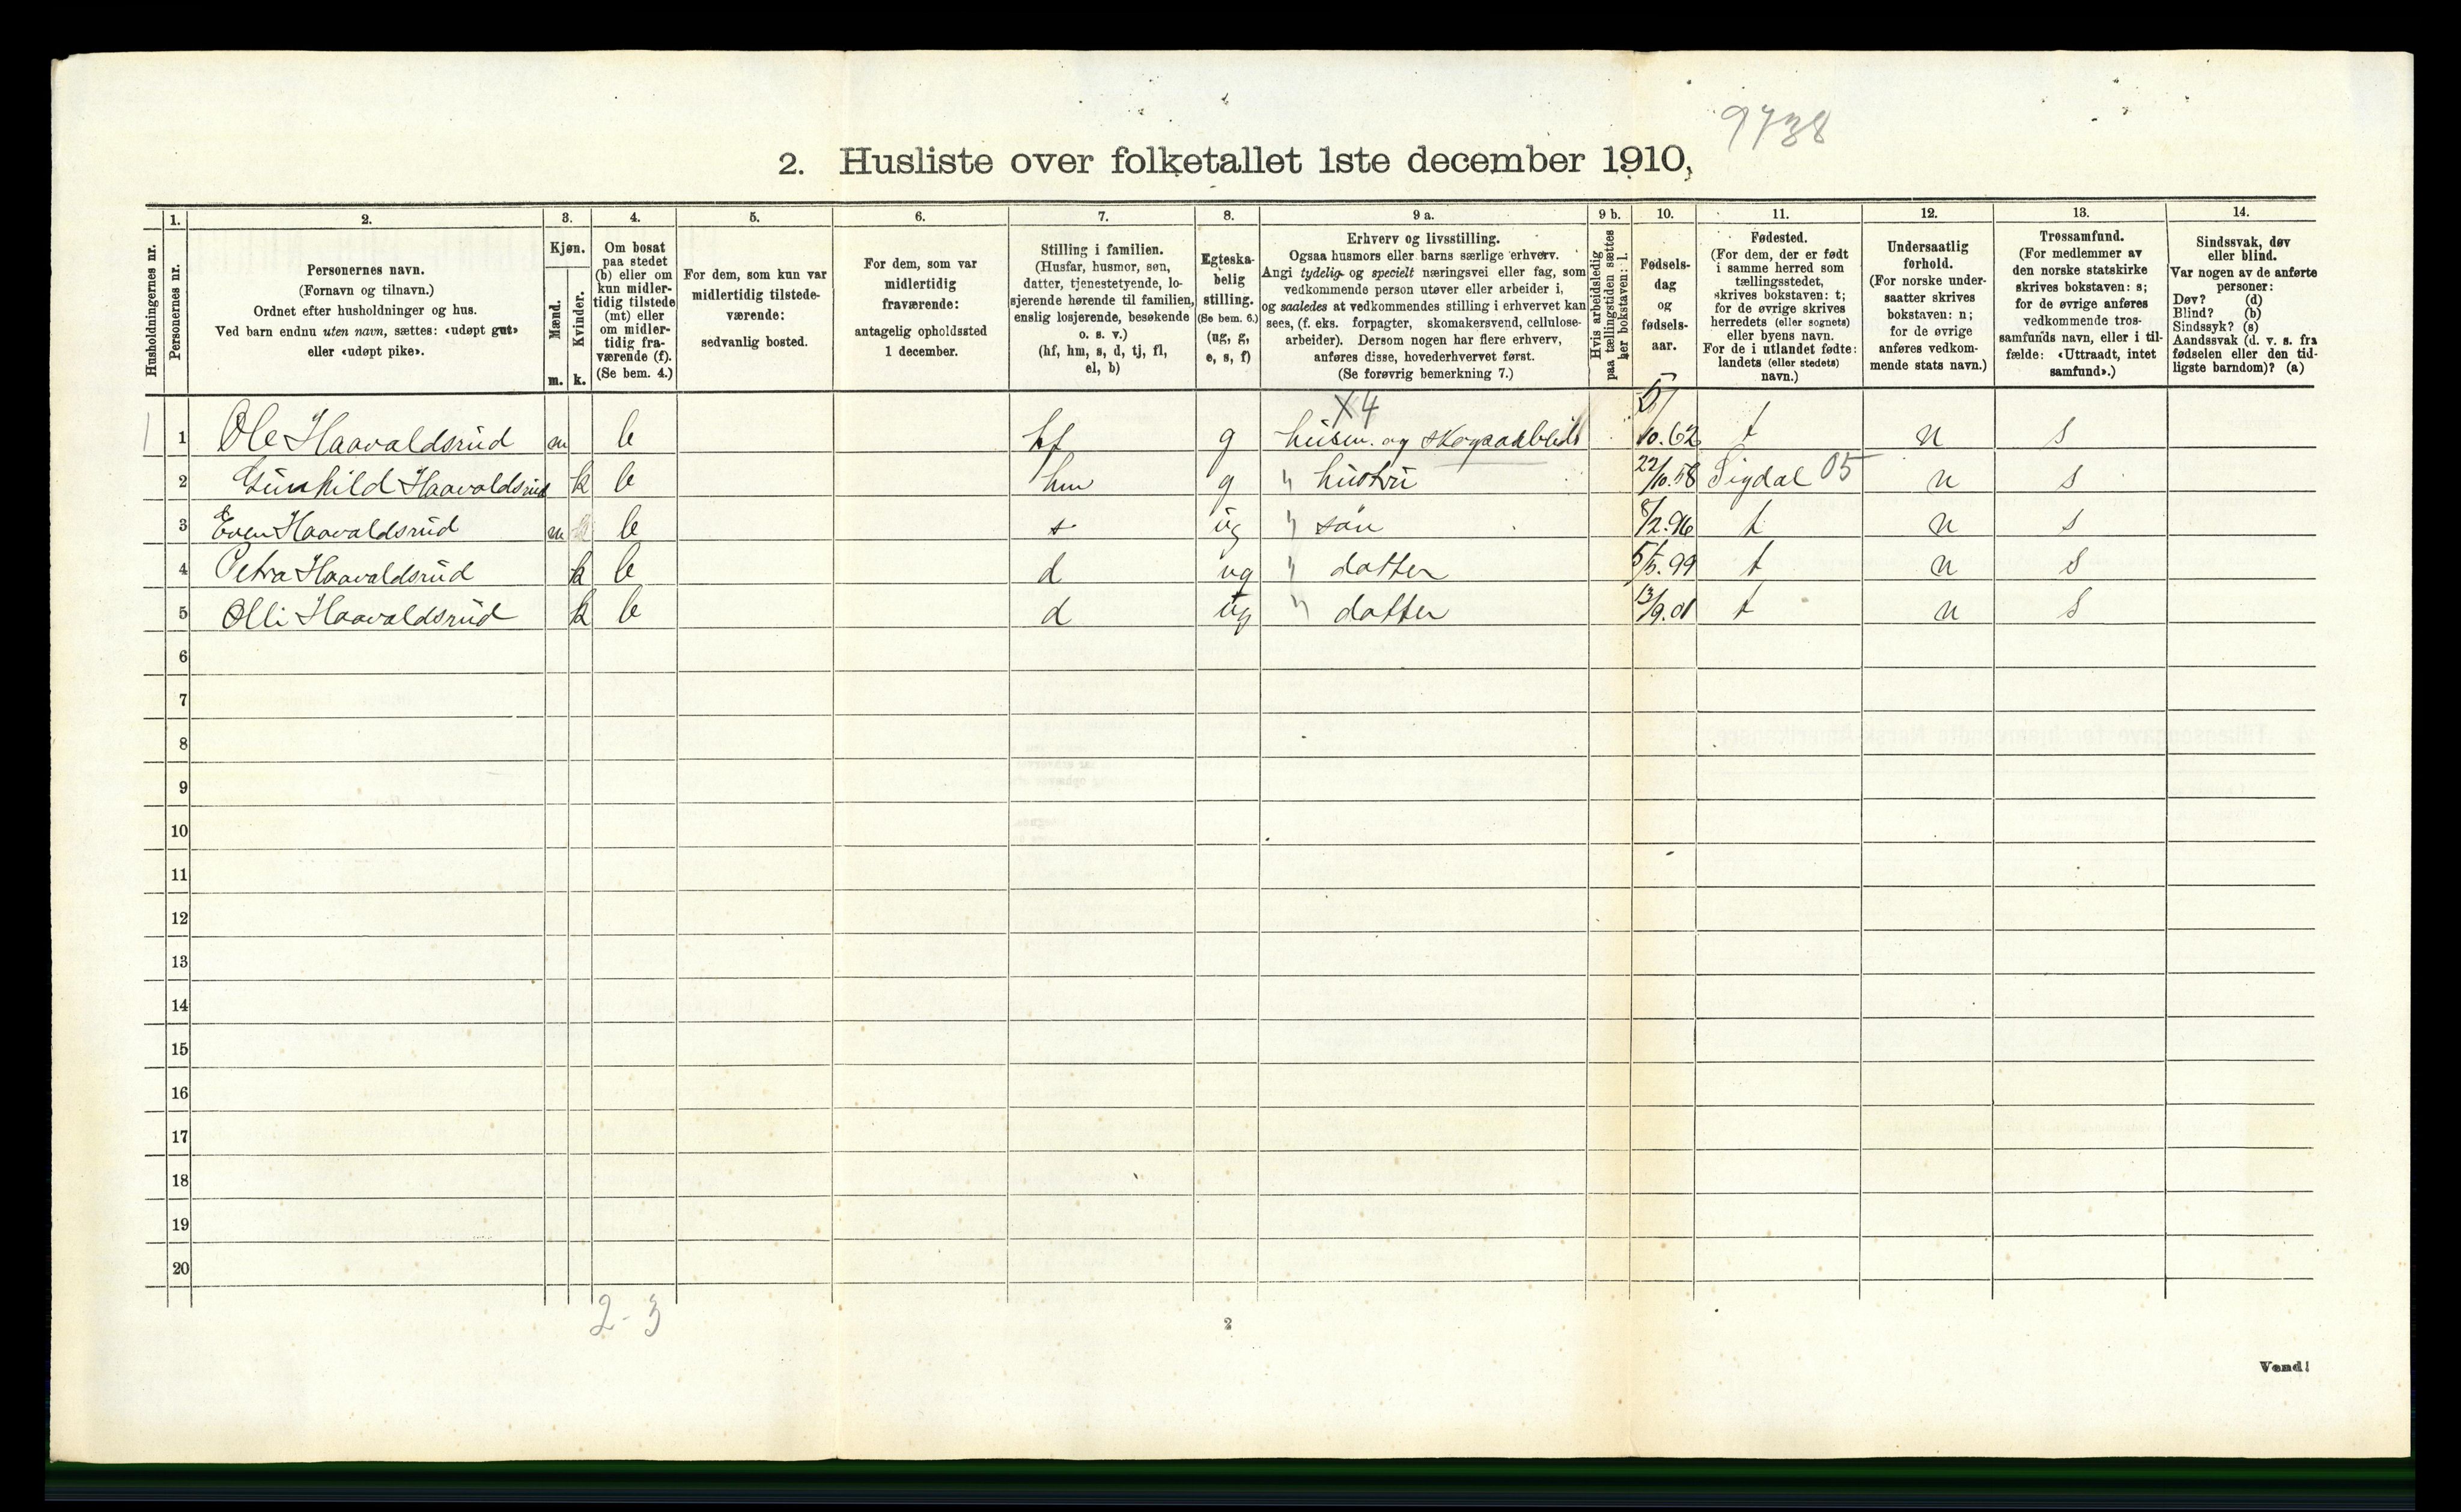 9738
2. Husliste over folketallet 1ste december 1910,
Husholdningernes nr.
1.
Personernes nr.
2.
Personernes navn.
(Fornavn og tilnavn.)
Ordnet efter husholdninger og hus.
Ved barn endnu uten navn, sættes: «udøpt gut»
eller «udøpt pike».
3.
Kjøn.
Mænd.
Kvinder.
m.
k.
4.
Om bosat
paa stedet
(b) eller om
kun midler-
tidig tilstede
(mt) eller
om midler-
tidig fra-
værende (f).
(Se bem. 4.)
5.
For dem, som kun var
midlertidig tilstede-
værende:
sedvanlig bosted.
6.
For dem, som var
midlertidig
fraværende:
antagelig opholdssted
1 december.
7.
Stilling i familien.
(Husfar, husmor, søn,
datter, tjenestetyende, lo-
sjerende hørende til familien,
enslig losjerende, besøkende
o. s. v.)
(hf, hm, s, d, tj, fl,
el, b)
8.
Egteska-
belig
stilling.
(Se bem. 6.)
(ug, g,
e, s, f)
9 a.
Erhverv og livsstilling.
Ogsaa husmors eller barns særlige erhverv.
Angi tydelig og specielt næringsvei eller fag, som
vedkommende person utøver eller arbeider i,
og saaledes at vedkommendes stilling i erhvervet kan
sees, (f. eks. forpagter, skomakersvend, cellulose-
arbeider). Dersom nogen har flere erhverv,
anføres disse, hovederhvervet først.
(Se forøvrig bemerkning 7.)
9 b.
Hvis arbeidsledig
paa tællingstiden sættes
her bokstaven: l.
10.
Fødsels-
dag
og
fødsels-
aar.
11.
Fødested.
(For dem, der er født
i samme herred som
tællingsstedet,
skrives bokstaven: t;
for de øvrige skrives
herredets (eller sognets)
eller byens navn.
For de i utlandet fødte:
landets (eller stedets)
navn.)
12.
Undersaatlig
forhold.
(For norske under-
saatter skrives
bokstaven: n;
for de øvrige
anføres vedkom-
mende stats navn.)
13.
Trossamfund.
(For medlemmer av
den norske statskirke
skrives bokstaven: s;
for de øvrige anføres
vedkommende tros-
samfunds navn, eller i til-
fælde: «Uttraadt, intet
samfund».)
14.
Sindssvak, døv
eller blind.
Var nogen av de anførte
personer:
Døv? (d)
Blind? (b)
Sindssyk? (s)
Aandssvak (d. v. s. fra
fødselen eller den tid-
ligste barndom)? (a)
X4
1 1 Ole Haavaldsrud m b hf g husm. og skogsarbeid 5/10.62 t n s
2 Gunhild Haavaldsrud k b hm g " hustru 22/10.58 Sigdal 05 n s
3 Even Haavaldsrud m b s ug " søn 8/2.96 t n s
4 Petra Haavaldsrud k b d ug " datter 5/5.99 t n s
5 Olli Haavaldsrud k b d ug " datter 13/9.01 t n s
6
7
8
9
10
11
12
13
14
15
16
17
18
19
20
2-3
2
Vend!